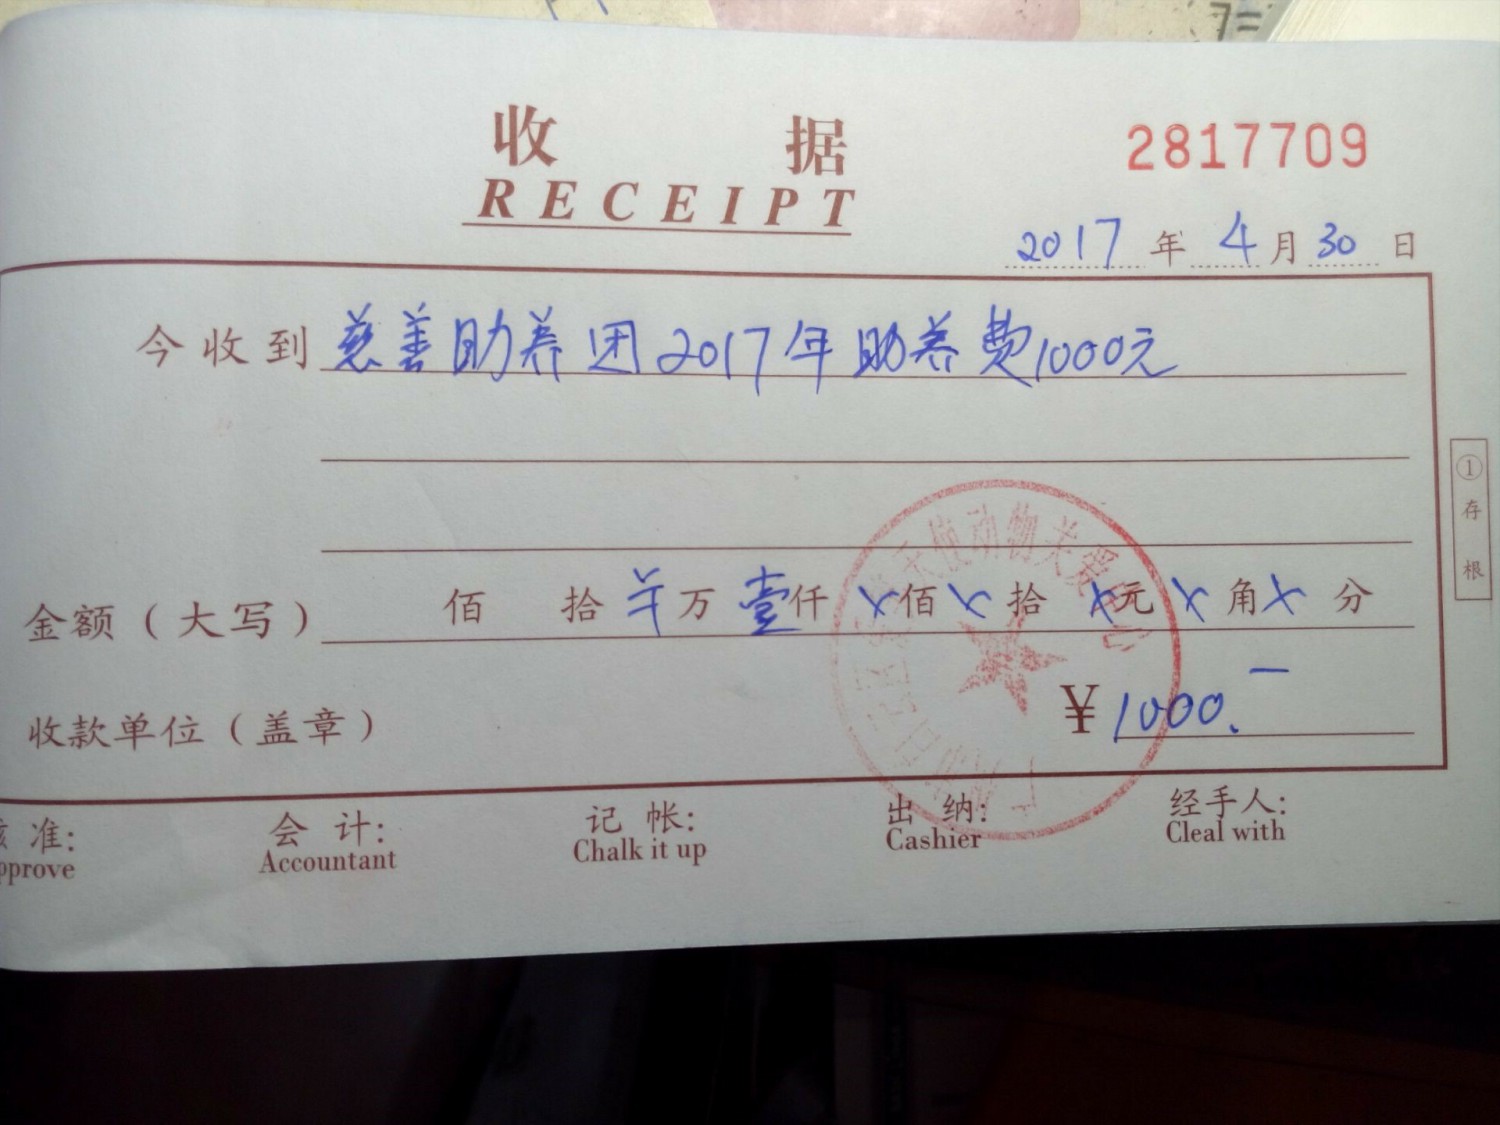 7=
收 据
2817709
RECEIPT
2017 年 4 月 30 日
今收到 慈善助养团2017年助养费1000元
① 存根
金额（大写） 佰 拾 万 壹仟 x佰 x拾 x元 x角 x分
天使动物关爱
收款单位（盖章） ¥1000.—
准: 会计: 记帐: 出纳: 经手人:
pprove Accountant Chalk it up Cashier Cleal with